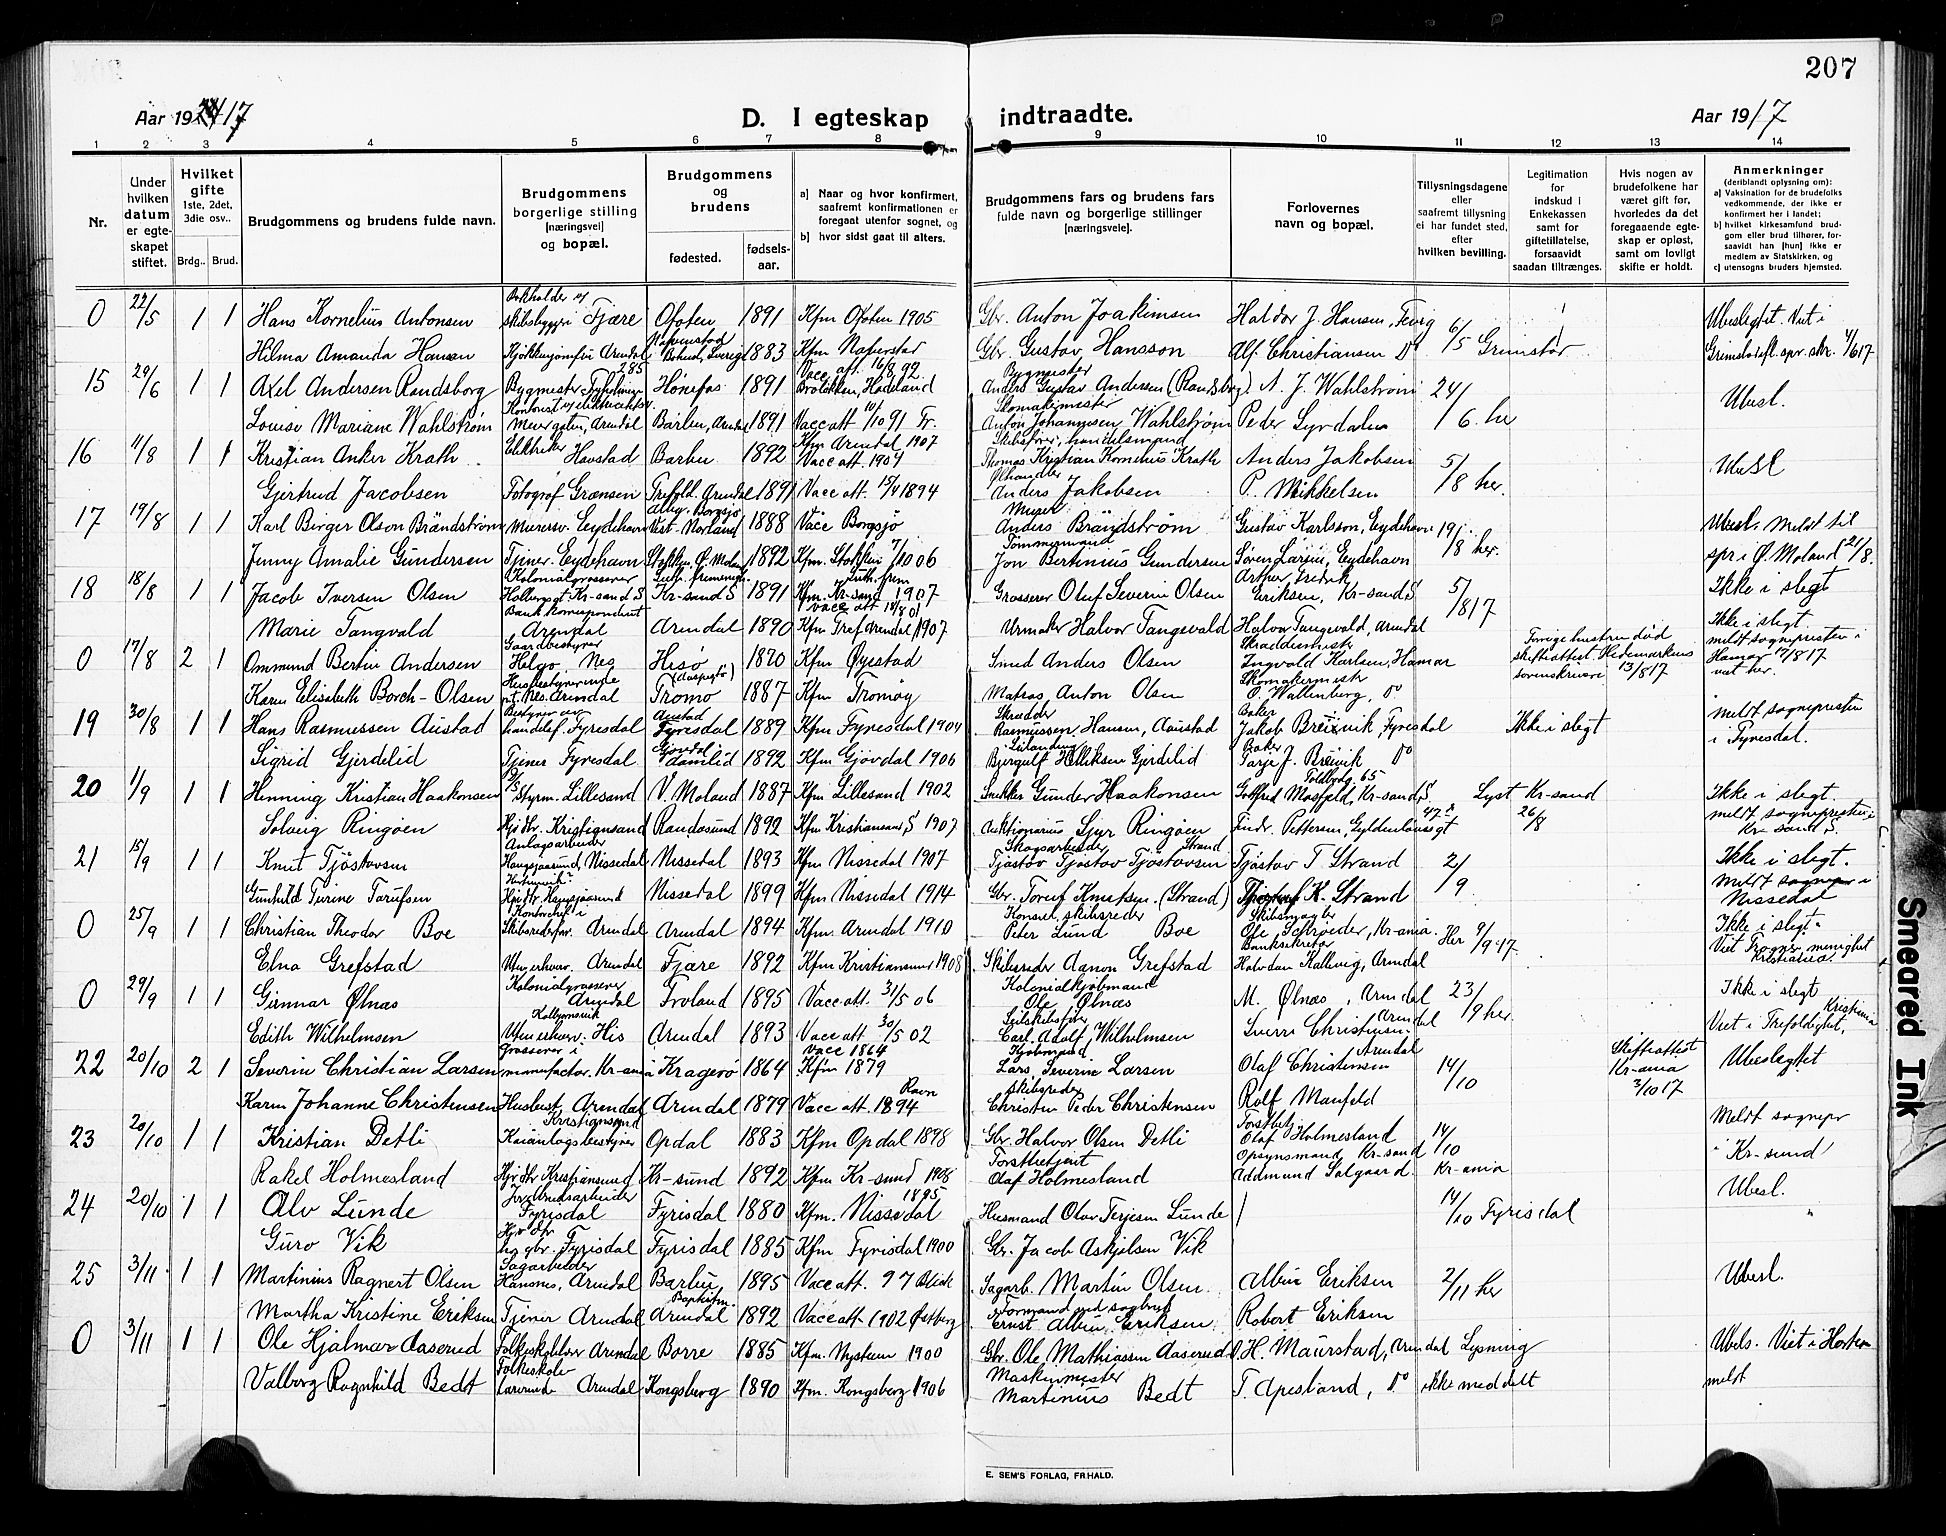 207
Aar 1917
D. I egteskap indtraadte.
Aar 1917
1 2 3 4 5 6 7 8 9 10 11 12 13 14
Nr.
Under hvilken datum er egteskapet stiftet.
Hvilket gifte 1ste, 2det, 3die osv..
Brdg.. Brud.
Brudgommens og brudens fulde navn.
Brudgommens borgerlige stilling [næringsvei] og bopæl.
Brudgommens og brudens
fødested.
fødsels-aar.
a) Naar og hvor konfirmert, saafremt konfirmationen er foregaat utenfor sognet, og
b) hvor sidst gaat til alters.
Brudgommens fars og brudens fars fulde navn og borgerlige stillinger [næringsveie].
Forlovernes navn og bopæl.
Tillysningsdagene eller saafremt tillysning ei har fundet sted, efter hvilken bevilling.
Legitimation for indskud i Enkekassen samt for giftetillatelse, forsaavidt saadan tiltrænges.
Hvis nogen av brudefolkene har været gift før, hvorledes da det foregaaende egteskap er opløst, samt om lovligt skifte er holdt.
Anmerkninger
(deriblandt oplysning om):
a) Vaksination for de brudefolks vedkommende, der ikke er konfirmert her i landet;
b) hvilket kirkesamfund brudgom eller brud tilhører, forsaavidt han [hun] ikke er medlem av Statskirken, og
c) utensogns bruders hjemsted.
0 22/5 1 1 Hans Kornelius Antonsen skibsbyggeri Fjære Ofoten 1891 Kfm Ofoten 1905 Gbr. Anton Joakimsen Haldor J. Hansen, Fevig 6/5 Grimstad Ubeslegtet. Viet i
Hilma Amanda Hansen Kjøkkenjomfru Arendal 1883 Kfm Naverstad Gbr. Gustav Hansson Alf. Christiansen Do
15 29/6 1 1 Axel Andersen Randsborg Bygmester Hønefos 1891 Vacc. att. 16/8 92 Bygmester Anders Gustav Andersen (Randsborg) A. J. Wahlstrøm 24/6 her Ubesl.
Louise Mariane Wahlstrøm Arendal Barbu, Arendal 1891 Vacc att 10/10 91 Skomakermester Anton Johannesen Wahlstrøm Peder Lyrdalen
16 11/8 1 1 Kristian Anker Krath Elektriker Havstad Barbu 1892 Kfm Arendal 1907 Vacc att. 1904 Skibsfører, handelsmand Thomas Kristian Kornelius Krath Anders Jakobsen 5/8 her. Ubesl
Gjertrud Jacobsen Fotograf Grænsen Trefold. Arendal 1891 Vacc att. 15/4 1894 Ølhandler Anders Jakobsen P. Mikkelsen
17 19/8 1 1 Karl Birger Olson Brändström Murersv. Eydehavn Alby, Borgsjö Vest. Norland 1888 Vacc Borgsjö Murer Anders Brändström Gustav Karlsson, Eydehavn 19/8 her. Ubesl. Meldt til
Jenny Amalie Gundersen Tjener. Eydehavn Stokken Ø. Moland 1892 Kfm. Stokken 7/10 06 Tømmermand Jon Bertinius Gundersen Søren Larsen, Eydehavn spr i Ø. Moland 21/8.
18 18/8 1 1 Jacob Iversen Olsen Kolonialgrosserer Holbergsgt Kr-sand S Kr-sand S 1891 Kfm. Kr-sand 1907 Grosserer Oluf Severin Olsen Arthur Fredrik Eriksen, Kr-sand S 5/8 17 Ikke i slegt
Marie Tangvald Bankkorrespondent Arendal Arendal 1890 vacc att 18/8 01 Kfm Tref Arendal 1907 Urmaker Halvor Tangevald Halvor Tangevald, Arendal Ikke i slegt.
0 17/8 2 1 Ommund Bertin Andersen Gaardbestyrer Helgø, Nes Hisø 1870 Kfm Øyestad Smed Anders Olsen Skræddermester Ingvald Karlsen, Hamar Forrige hustru død skifteattest Hedemarkens sorenskriveri 13/8 17 meldt sognepresten i Hamar 17/8 17 viet her.
Karen Elisabeth Borch-Olsen Husbestyrerinde Arendal Tromø 1887 Kfm Tromøy Matros Anton Olsen Skomakermester O. Wallenberg, Do
19 30/8 1 1 Hans Rasmussen Austad Bestyrer av handelsf. Fyresdal Austad Fyresdal 1889 Kfm Fyresdal 1904 Skrædder Rasmussen Hansen, Aaustad Baker Jakob Breivik, Fyresdal Ikke i slegt meldt sognepresten
Sigrid Gjerdelid Tjener Fyresdal Gjøvdal 1892 Kfm Gjövdal 1906 Bjergulf Helliksen Gjerdelid Baker Tarje J. Breivik Do i Fyresdal.
20 1/9 1 1 Henning Kristian Haakonsen Styrm. Lillesand V. Moland 1887 Kfm Lillesand 1902 Snekker Gunder Haakonsen Gotfred Mosfeld, Kr-sand S Toldbodg. 65 Lyst Kr-sand Ikke i slegt.
Solveig Ringøen Hjv. dtr. Kristiansand Randøsund 1892 Kfm Kristiansand S 1907 Auktionarius Sjur Ringøen Fredr. Pettersen, Gyldenløvesgt 47 26/8 meldt sognepresten i Kr. sand S.
21 15/9 1 1 Knut Tjöstovsen Anlægsarbeider Haugsjaasund, Nissedal Nissedal 1893 Kfm Nissedal 1907 Skogsarbeider Tjöstov Tjöstov Tjöstovsen Strand Tjöstov T Strand 2/9 Ikke i slegt.
Gunhild Turine Torufsen Hjv. dtr. Haugsjaasund Nissedal 1899 Kfm Nissedal 1914 Gbr. Toruf Knutsen (Strand) K. Strand Meldt i Nissedal
0 25/9 1 1 Christian Theodor Boe Kontorchef i Skibsrederfor. Arendal Arendal 1894 Kfm. Arendal 1910 Konsul, skibsreder Peter Lund Boe Skibsmægler Ole Schrøeder, Kr-ania. Her 9/9 17 Ikke i slegt
Elna Grefstad Uten erhverv. Arendal Fjære 1892 Kfm Kristiansund 1908 Skibsreder Aanon Grefstad Banksekretær Halvdan Kallevig, Arendal Viet Frogner menighet Kristiania.
0 29/9 1 1 Gunnar Ølnæs Kolonialgrosserer Arendal Froland 1895 Vacc att. 31/5 06 Kolonialkjøbmand Ole Ølnæs M. Ølnæs, Arendal 23/9 her. Ikke i slegt
Edith Wilhelmsen Kolbjørnsvik Uten erhverv. His Arendal 1893 Vacc att 30/5 02 Seilskibsfører Carl Adolf Wilhelmsen Sverre Christensen Arendal Viet i Trefoldighet, Kristiania
22 20/10 2 1 Severin Christian Larsen Grosserer i manufactur. Kr-ania Kragerø 1864 Vacc 1864 Kfm 1879 Kjøbmand Lars Severin Larsen Olaf Christensen Arendal 14/10 Skifteattest Kr-ania 3/10 17 Ubeslegtet
Karen Johanne Christensen Husbest. Arendal Arendal 1879 Vacc att. 1894 Ravn Skibsreder Christen Peder Christensen Rolf Manfeld
23 20/10 1 1 Kristian Detli Kristiansund Kaianlægsbestyrer Opdal 1883 Kfm Opdal 1898 Gbr. Halvor Olsen Detli Forstbetj. Olaf Holmesland 14/10 Meldt sognepr
Rakel Holmesland Hjv dtr Kristiansund Kr-sund 1892 Kfm Kr-sund 1908 Forstbetjent Olaf Holmesland Opsynsmand Kr-sand Addmund Solgaard. Kr-ania i Kr-sund
24 20/10 1 1 Alv Lunde Jernbanearbeider Fyrisdal Fyrisdal 1880 Kfm. Nissedal 1895 Husmand Olav Terjesen Lunde 14/10 Fyrisdal Ubesl.
Guro Vik Hjv. dtr. Fyrisdal Fyrisdal 1885 Kfm Fyrisdal 1900 Gbr. Jacob Askjelsen Vik
25 3/11 1 1 Martinius Ragnert Olsen Sagarbeider Hansnes, Arendal Barbu 1895 Vacc att. 97 Sagarb. Martin Olsen Albin Eriksen 2/11 her Ubesl.
Martha Kristine Eriksen Tjener Arendal Arendal 1892 Vacc att 1902 Østberg Formand ved sagbruk Ernst Albin Eriksen Robert Eriksen
0 3/11 1 1 Ole Hjalmar Aaserud Folkeskolelærer Arendal Borre 1885 Kfm. Nyskuen 1900 Gbr. Ole Mathiassen Aaserud H. Maurstad, Arendal Lysning Ubesl. Viet i Horten
Valborg Ragnhild Bedt Folkeskole lærerinde Arendal Kongsberg 1890 Kfm. Kongsberg 1906 Maskinmester Martinius Bedt T. Apesland, Do ikke meddelt meldt
E. SEM'S FORLAG, FRHALD.
Smeared Ink